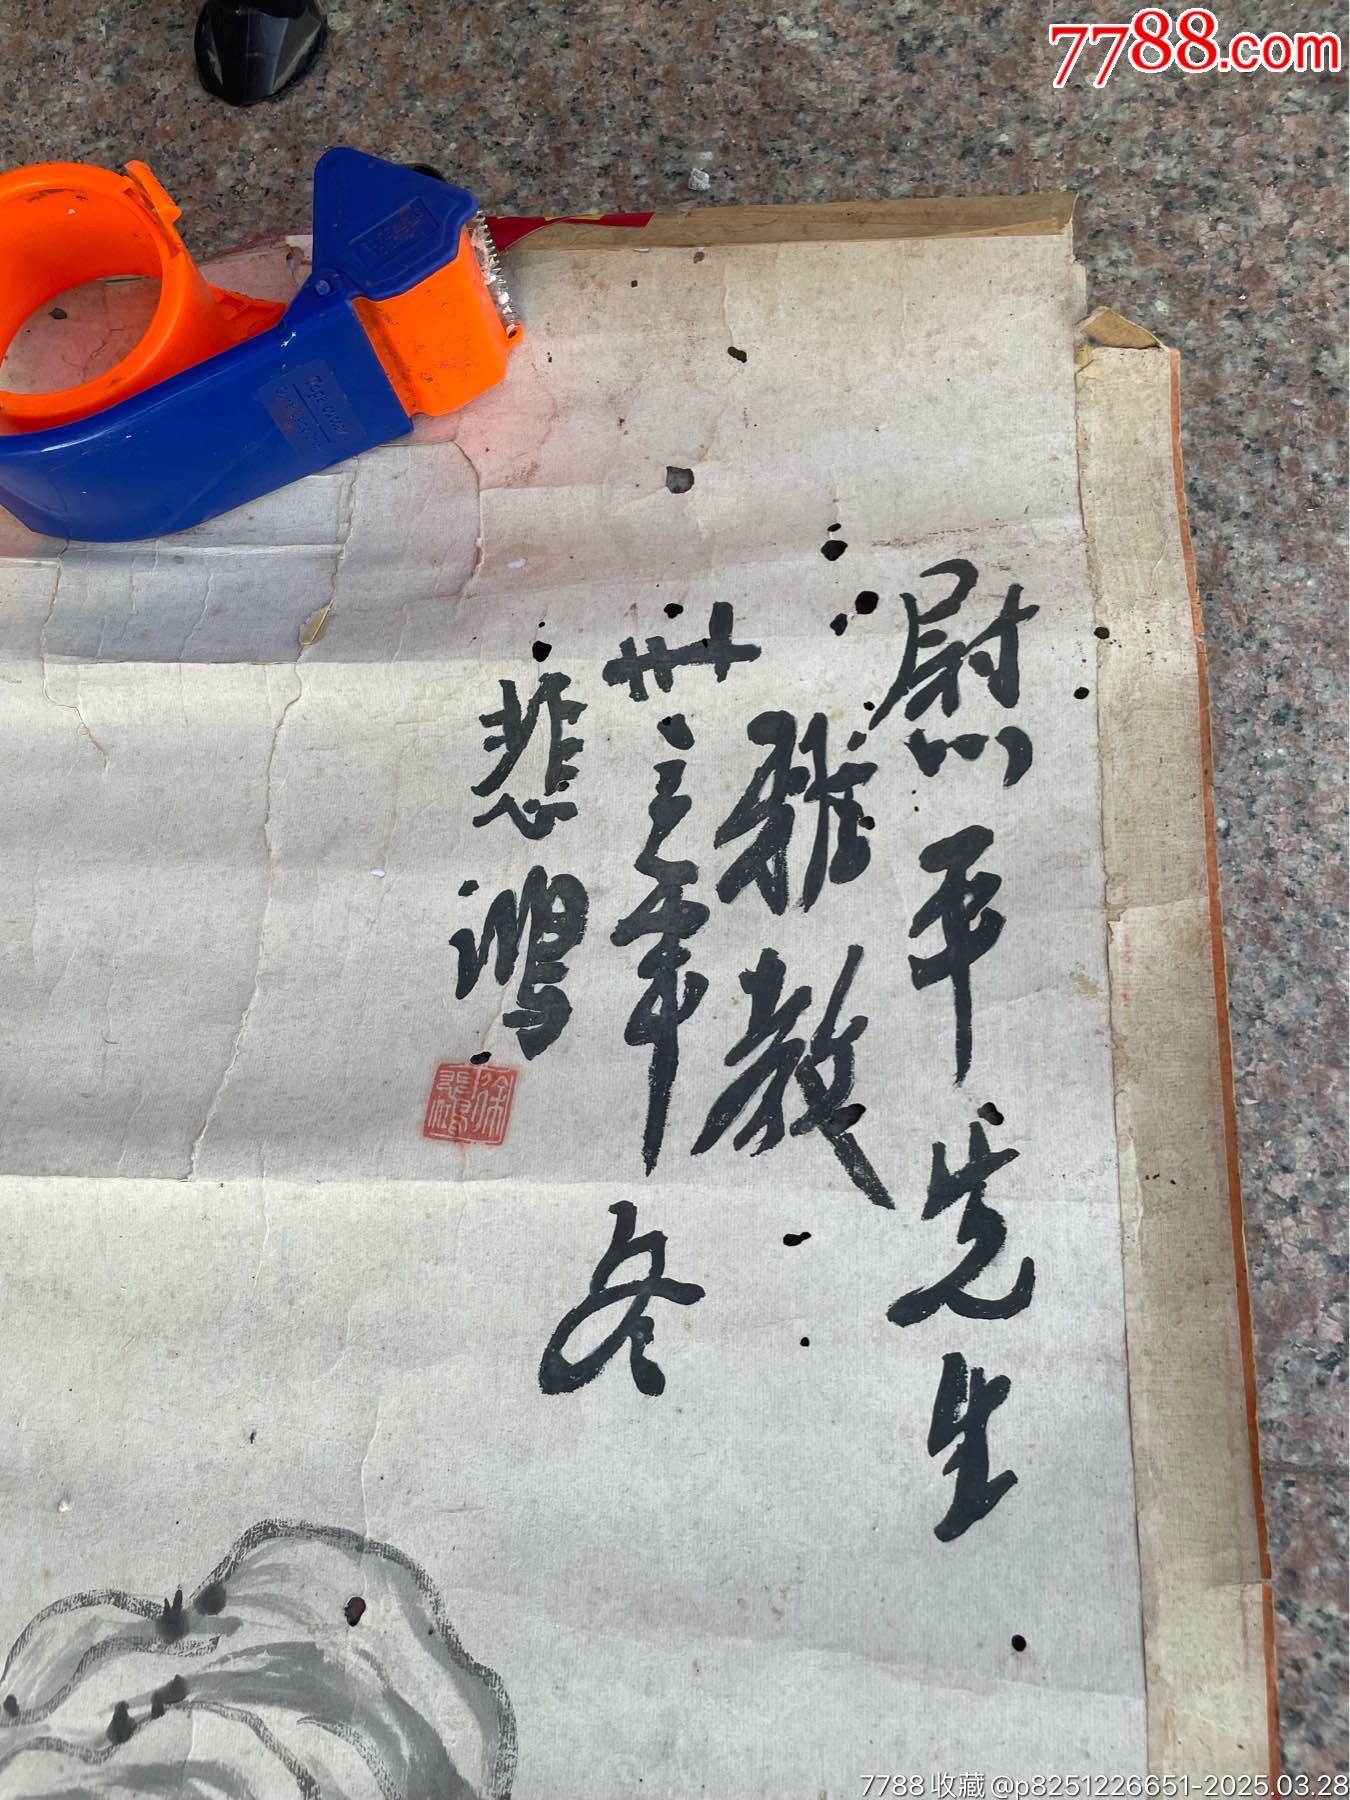 7788.com
慰平先生
雅教
卅三年冬
悲鴻
徐悲鴻
7788 收藏 @p8251226651-2025.03.28